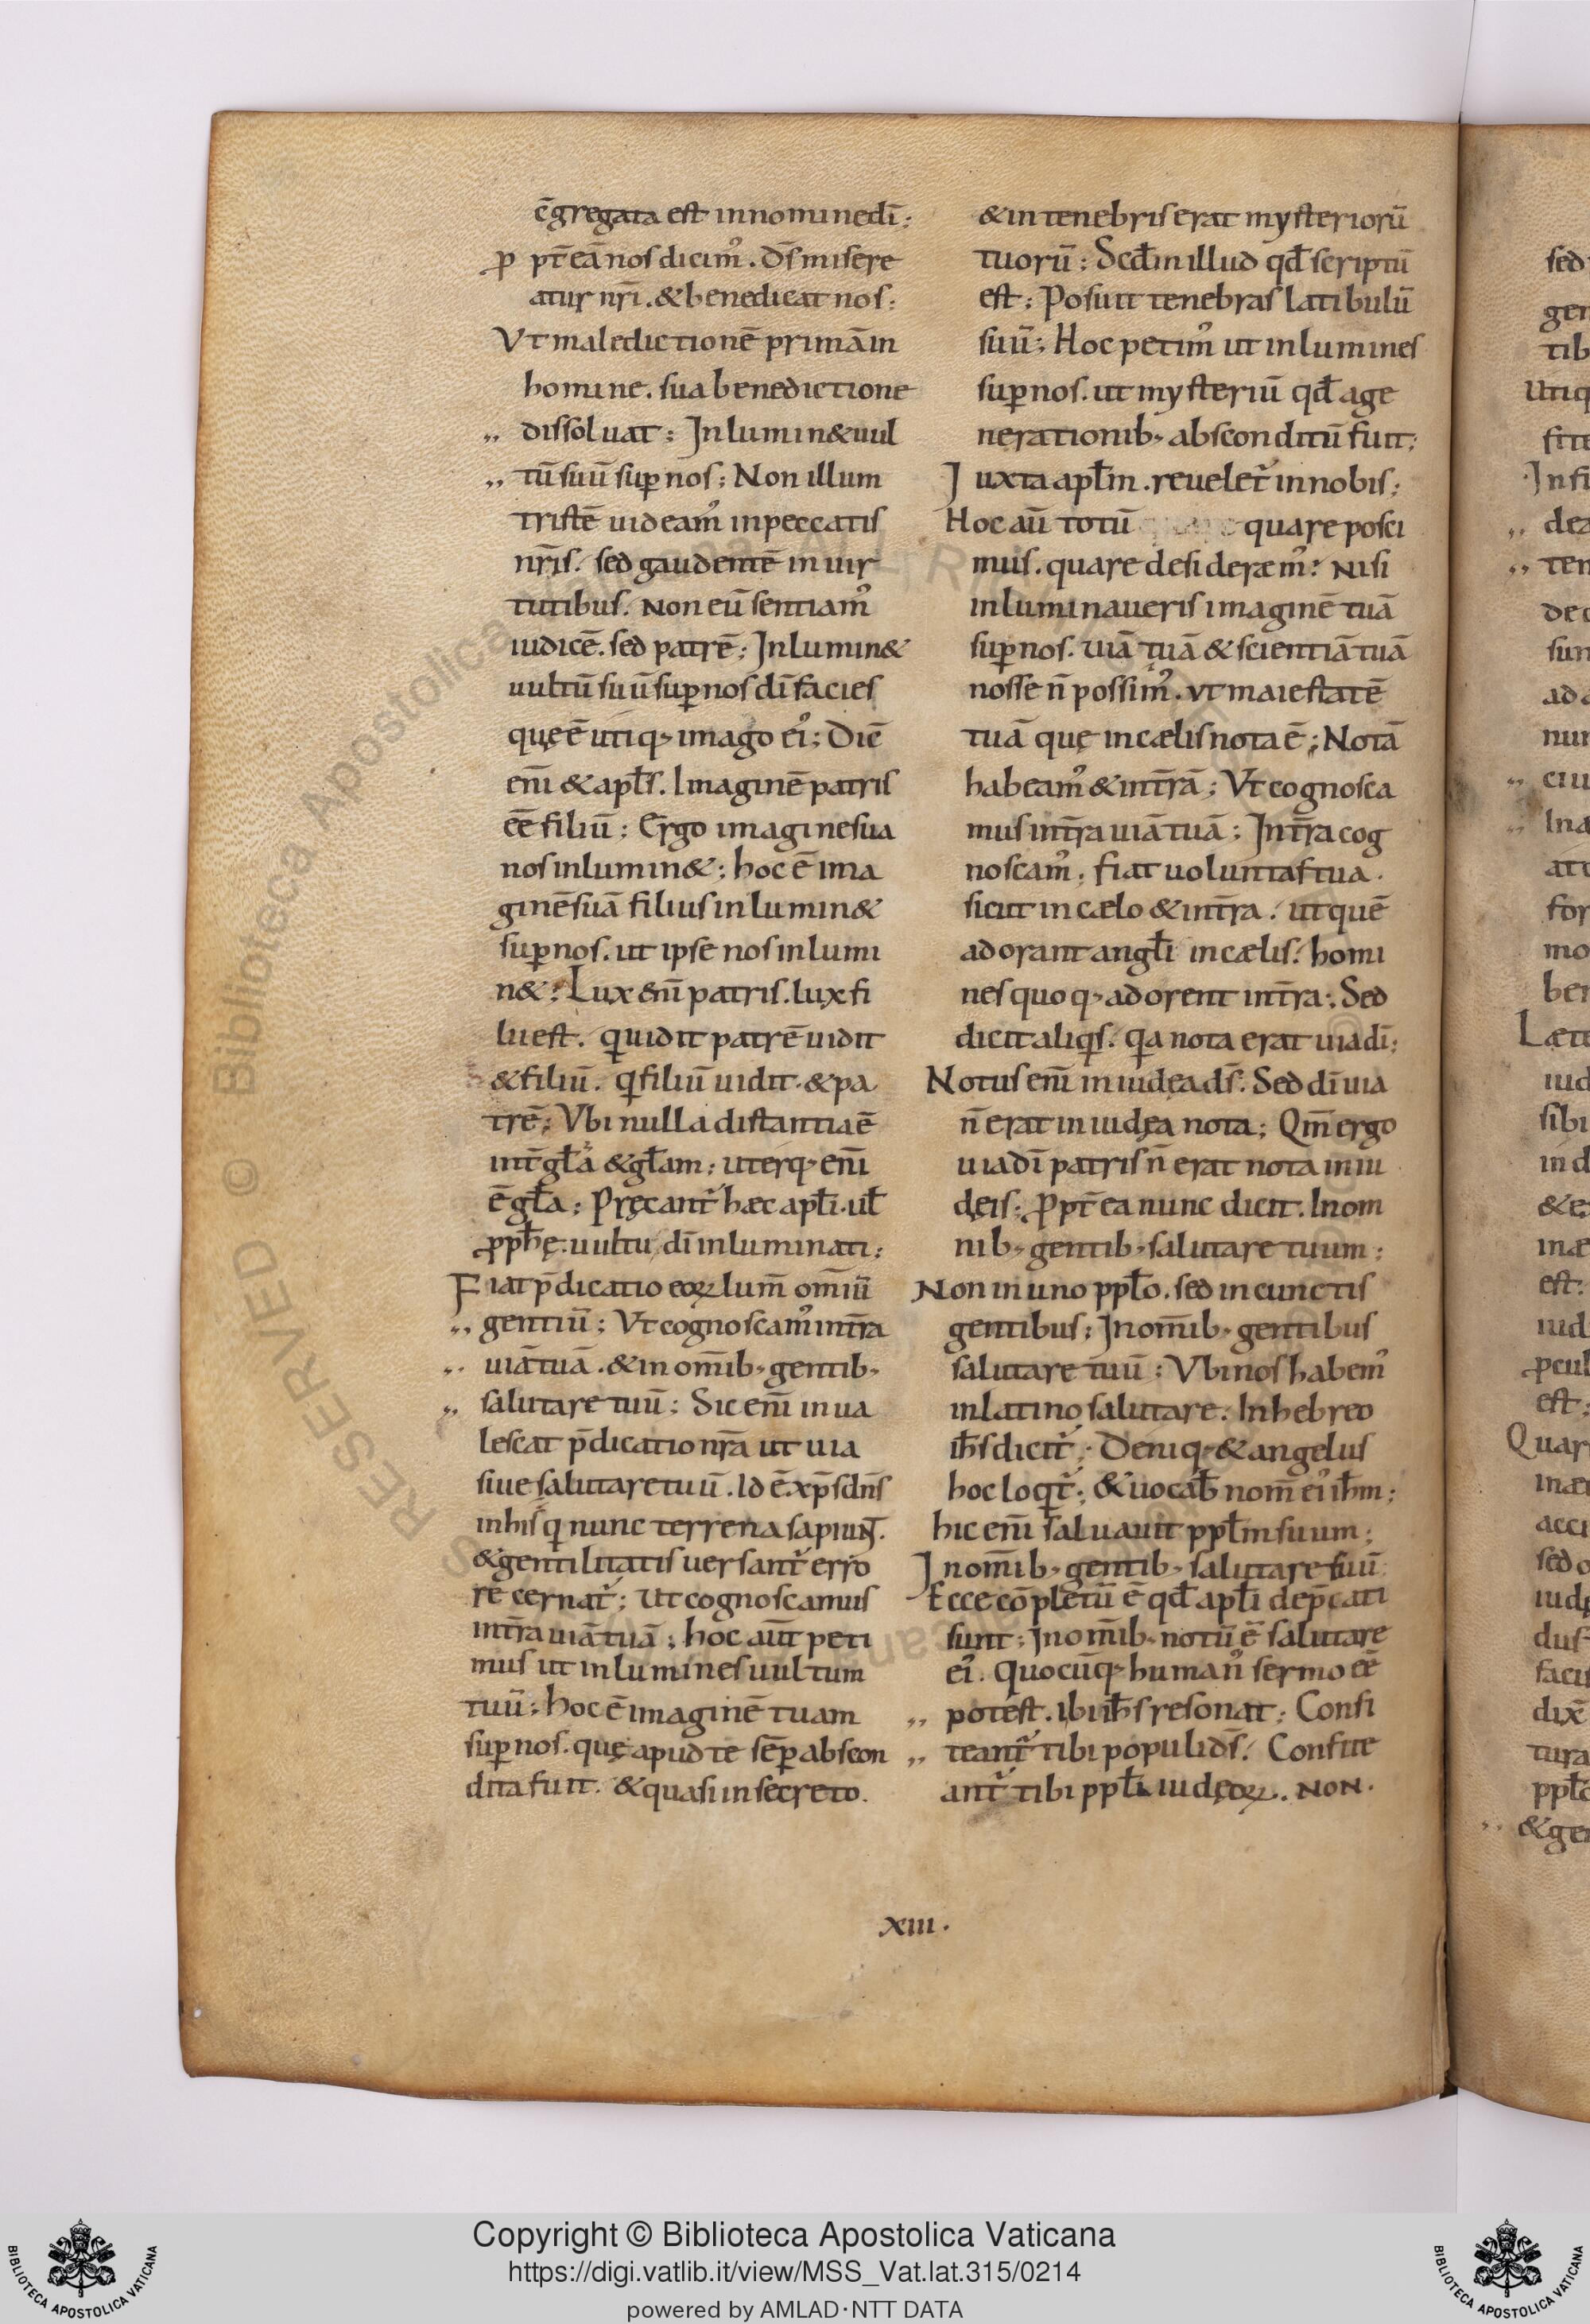 c̄gregata est innominedī;
p pt̄eā nos dicim᾿. Ds̄ misere
atur nr̄i. &benedicat nos;
Vt maledictionē primāin
homine. sua benedictione
„ dissoluat; Inlumin&uul
„ tū suū suꝑ nos; Non illum
tristē uideam᾿ inpeccatis
nr̄is. sed gaudentē in uir
tutibus. Non eū sentiam᾿
iudicē. sed patrē; Inlumin&
uultū suū suꝑnos dī facies
quę ē utiq; imago ei᾿; Diē
enī & apl̄s. Imaginē patris
eē filiū; Ergo imaginesua
nos inlumin&; hoc ē ima
ginē suā filius inlumin&
suꝑ nos. ut ipse nos inlumi
n&; Lux enī patris. lux fi
lii est. qui uidit patrē uidit
&filiū. q filiū uidit. &pa
trē; Vbi nulla distantia ē
int̄ gl̄ā &gl̄am; uterq; enī
ē gl̄a; Pręcant᾿ hæc apl̄i. ul̄
ꝓph̄ę. uultu dī inluminati;
Fiat p̄dicatio eoꝝ lum̄ om̄iū
„ gentiū; Vt cognoscam᾿ int̄ra
„ uiā tuā. &in om̄ib; gentib;
„ salutare tuū; Sic enī in ua
lescat p̄dicatio nr̄a ut uia
siue salutare tuū. Id ē xp̄s dn̄s
inhis q nunc terrena sapiunt.
&gentilitatis uersant᾿ erro
re cernat᾿; Ut cognoscamus
int̄ra uiā tuā; hoc aut̄ peti
mus ut inlumines uultum
tuū; hoc ē imaginē tuam
suꝑ nos. quę apud te sēꝑ abscon
dita fuit. &quasi in secreto.
&in tenebris erat mysteriorū
tuorū; Scd̄m illud qd̄ scriptū
est; Posuit tenebras latibulū
suū; Hoc petim᾿ ut inlumines
suꝑ nos. ut mysteriū qd̄ age
nerationib; absconditū fuit;
Iuxta apl̄m. reuelet᾿ in nobis;
Hoc aū totū quare posci
mus. quare desideræm᾿? Nisi
inluminaueris imaginē tuā
suꝑ nos. uiā tuā & scientiā tuā
nosse n̄ possim᾿. ut maiestatē
tuā quę in cælis nota ē; Notā
habeam᾿ &int̄rā; Vt cognosca
mus int̄ra uiā tuā; Int̄ra cog
noscam᾿; fiat uoluntas tua.
sicut in cælo &int̄ra. ut quē
adorant angl̄i in cælis. homi
nes quoq; adorent int̄ra; Sed
dicit aliqs. qa nota erat uia dī;
Notus enī in iudęa ds̄. Sed dī uia
n̄ erat in iudęa nota; Qm̄ ergo
uia dī patris n̄ erat nota in iu
dęis; ꝓpt̄ ea nunc dicit. In om
nib; gentib; salutare tuum;
Non in uno ppl̄o. sed in cunctis
gentibus; In om̄ib; gentibus
salutare tuū; Vbi nos habem᾿
in latino salutare. In hebreo
ih̄s dicit᾿; Deniq; &angelus
hoc loqt᾿; &uocab̄ nom̄ ei᾿ ih̄m;
hic enī saluauit ppl̄m suum;
In om̄ib; gentib; salutare suū
Ecce cōpletū ē qd̄ apl̄i dep̄cati
sunt; In om̄ib; notū ē salutare
ei᾿. Quocūq; human᾿ sermo eē
„ potest. ibi ih̄s resonat; Confi
„ teant᾿ tibi populi ds̄. Confite
ant᾿ tibi ppl̄i iudęoꝝ. NON.
xiii.
sed
gen
tib
Utiq
In fi
„ dea
„ ten
de
sun
ad
nun
„ ciu
for
mo
ber
Læt
iud
sibi
in d
est:
iud
est;
Quar
inæ
acci
sed
dus
dix̄
tura
ppl̄
„ &ge
Copyright © Biblioteca Apostolica Vaticana
https://digi.vatlib.it/view/MSS_Vat.lat.315/0214
powered by AMLAD·NTT DATA
BIBLIOTECA APOSTOLICA VATICANA
BIBLIOTECA APOSTOLICA VATICANA